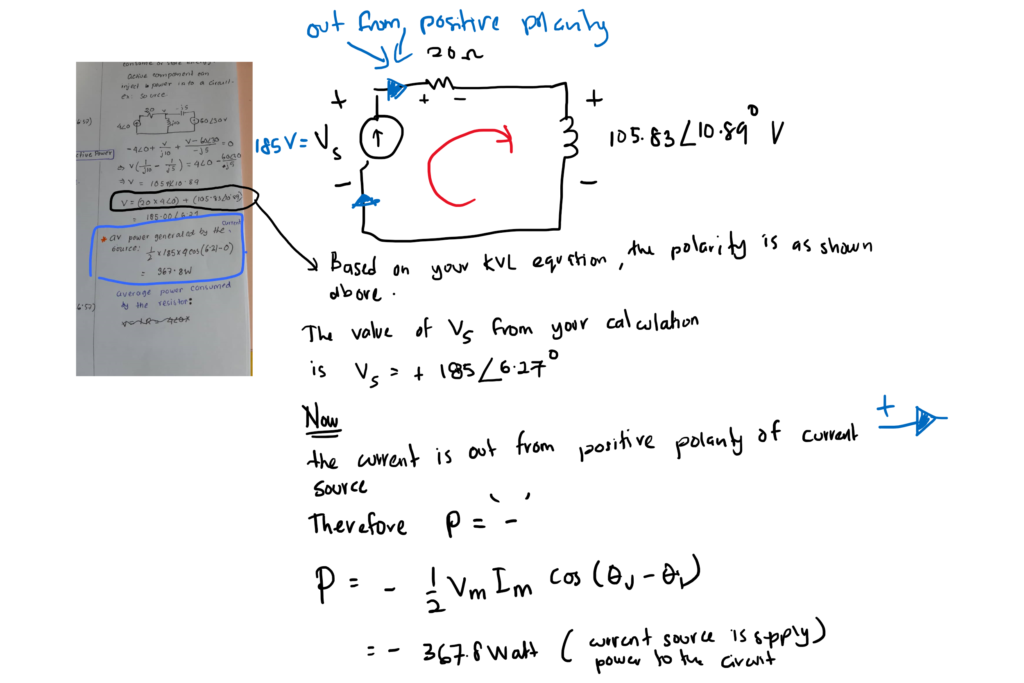 out from, positive polarity
20 Ω
+ -
+
+
185V = Vs
105.83∠10.89° V
-
-
consume or store energy.
active component can
inject power into a circuit
ex: source
-4∠0 + V/j10 + (V-60∠30)/-j5 = 0
V = (20 x 4∠0) + (105.83∠10.89)
= 185.00∠6.27
* av power generated by the current
source: 1/2 x 185 x 4 cos(6.21-0)
= 367.8W
average power consumed
by the resistor:
Based on your KVL equstion, the polarity is as shown
above.
The value of Vs from your calculation
is Vs = + 185∠6.27°
Now
the current is out from positive polarity of current +
source
Therefore P = '-'
P = - 1/2 Vm Im cos (θv - θi)
= - 367.8 Watt ( current source is supply )
power to the circuit